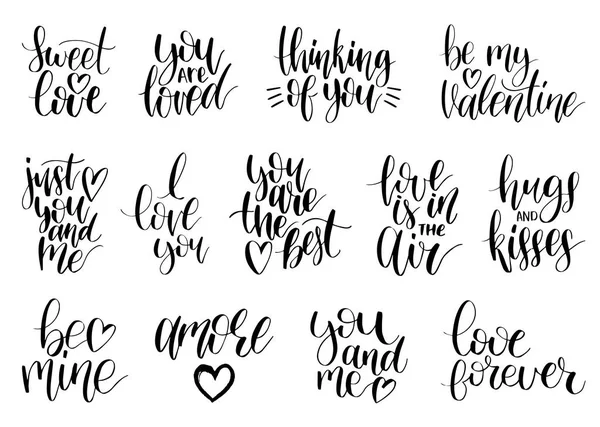 sweet
love
you
ARE
loved
thinking
of you
be my
Valentine
just
you
and
me
I
love
you
you
are
the
best
love
is in
THE
air
hugs
AND
kisses
be
mine
amore
you
and
me
love
forever